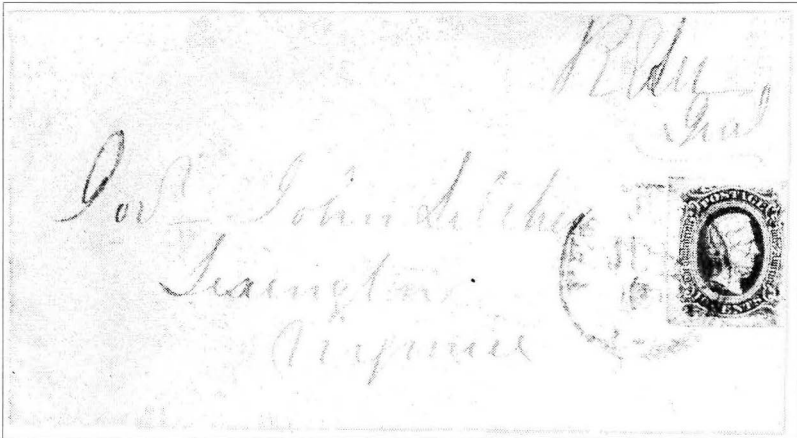 R E Lee
Genl
Govr John Letcher
Lexington
Virginia
POSTAGE
TEN CENTS